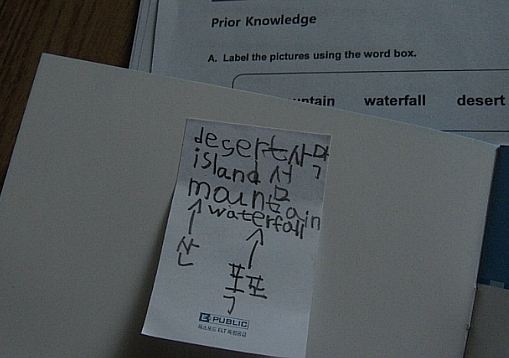 Prior Knowledge
A. Label the pictures using the word box.
waterfall desert
desert 사막
island 섬
mountain
waterfall
산
폭포
E PUBLIC